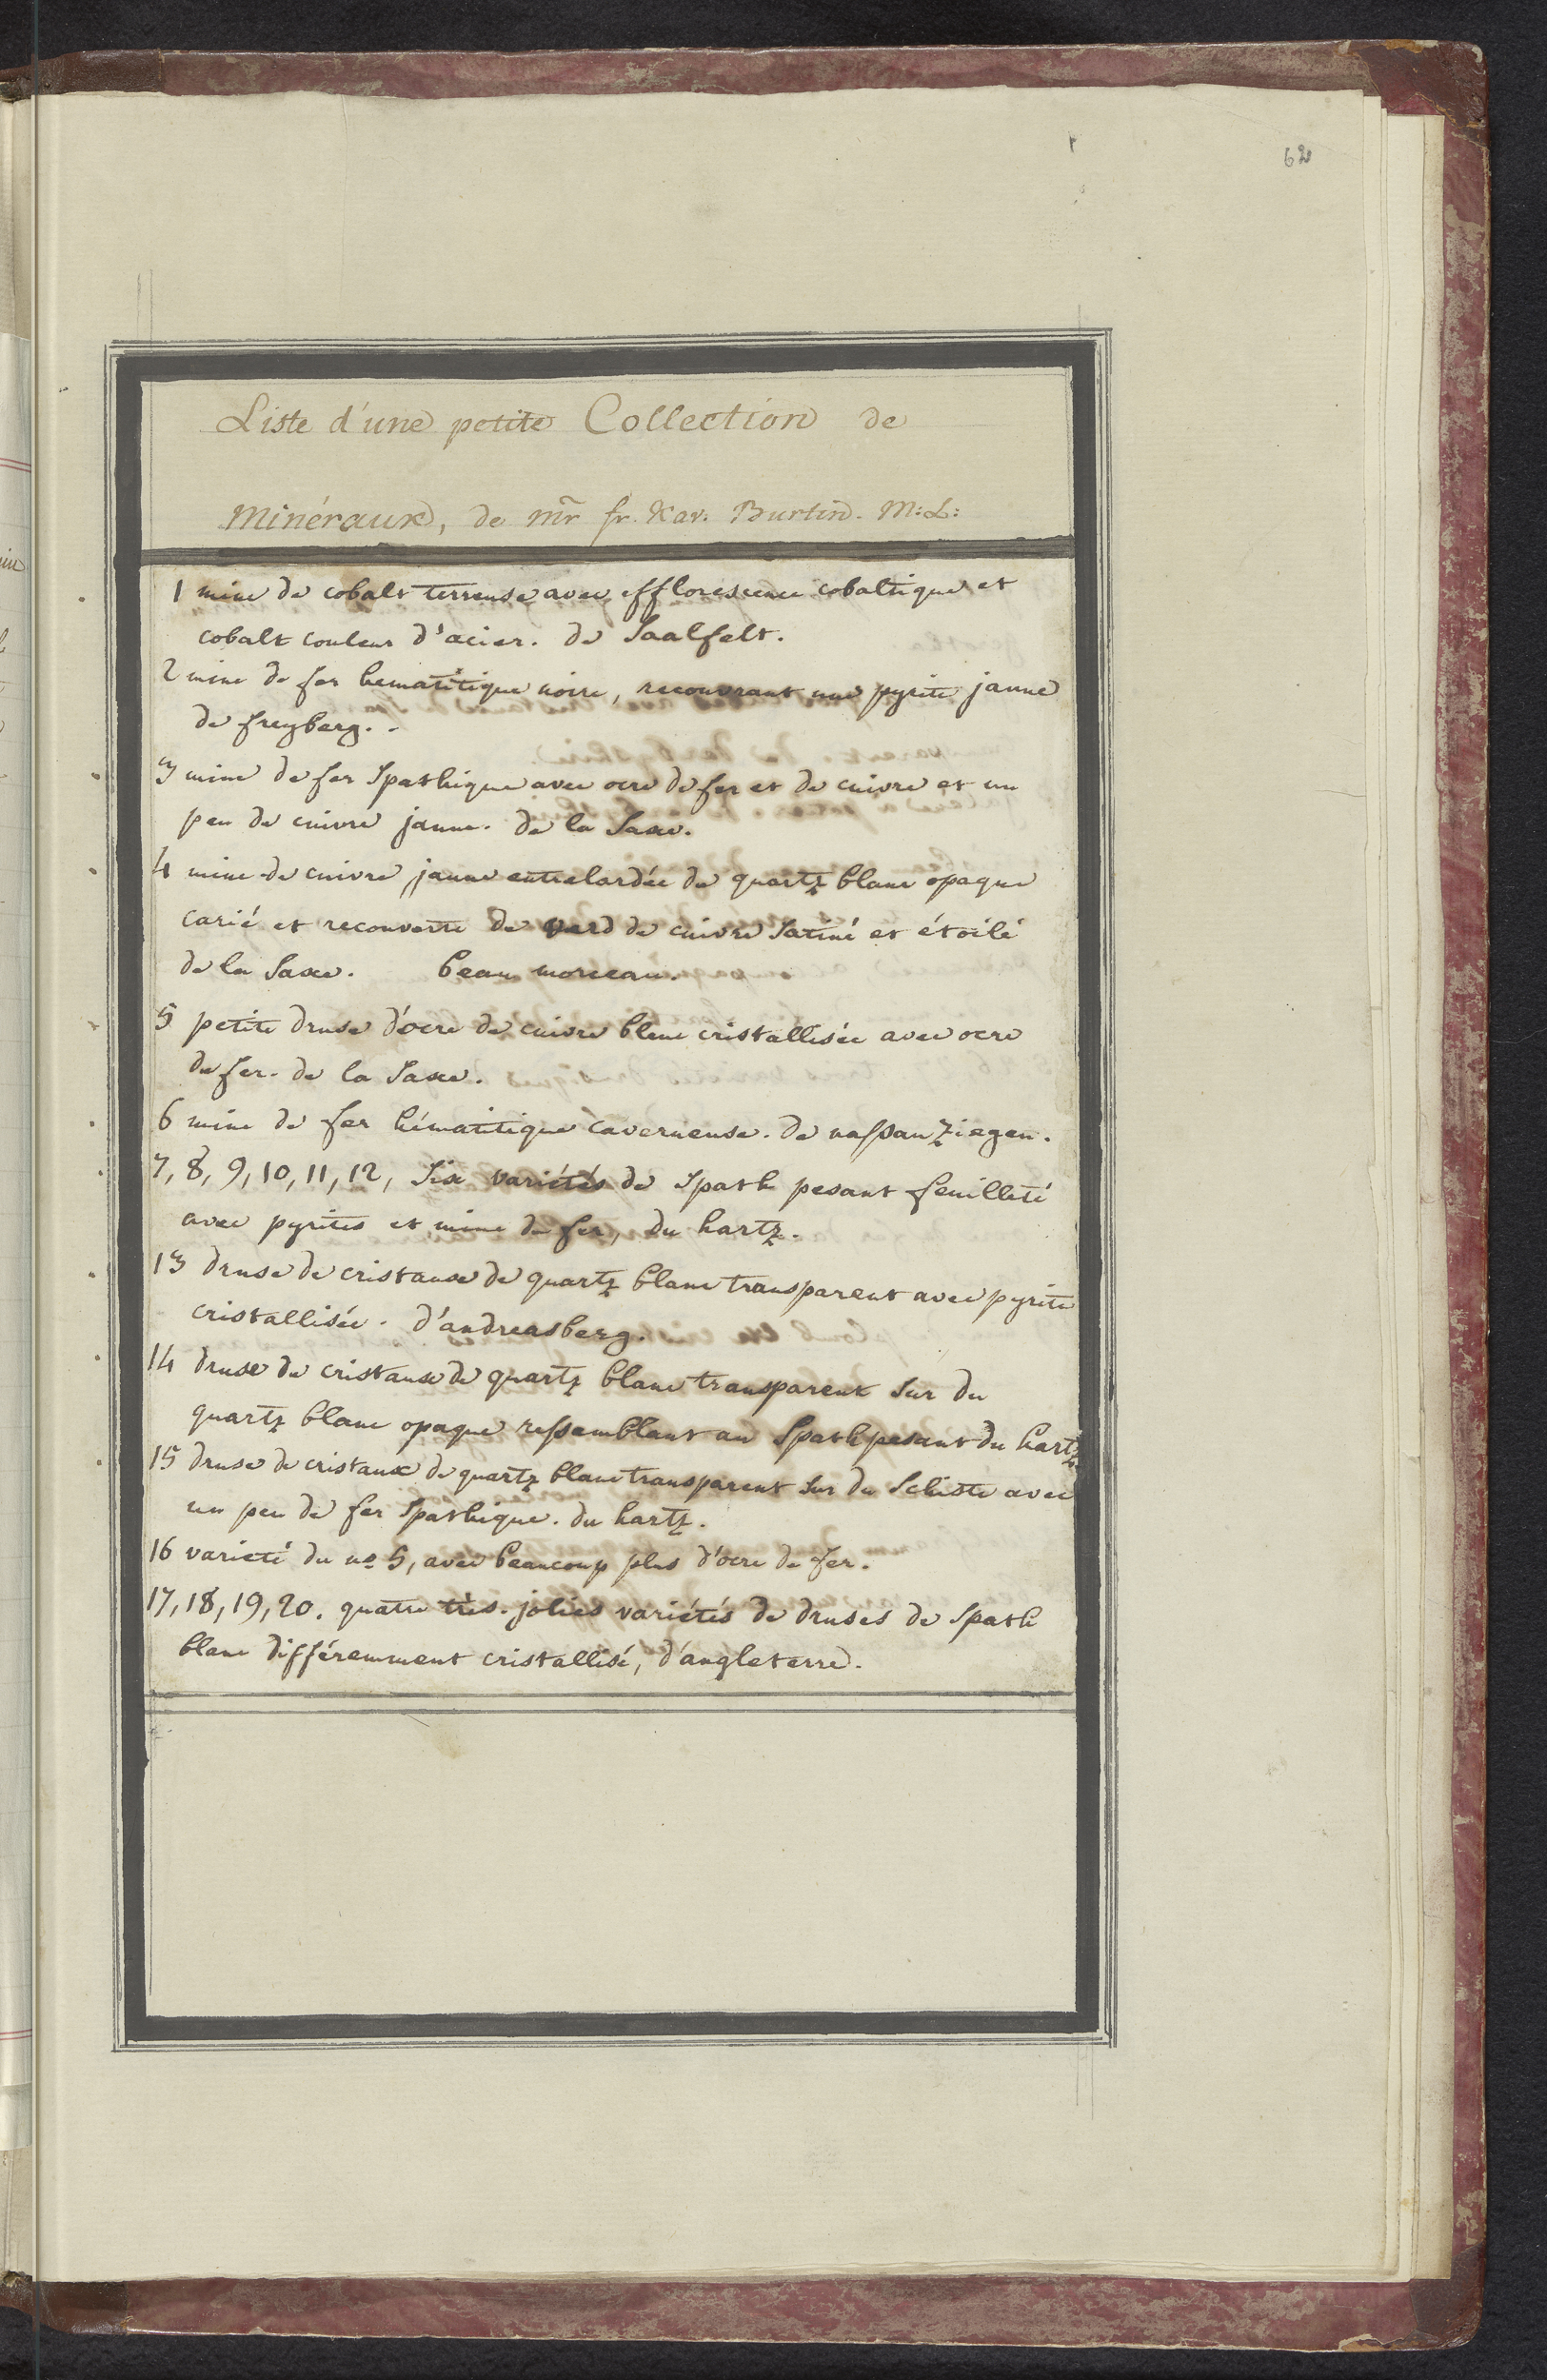 62
Liste d'une petite Collection de
Minéraux, de mr fr. Xav: Burtin. M:L:
1 mine de cobalt terreuse avec efflorescence cobaltique et
cobalt couleur d'acier. de Saalfelt.
2 mine de fer hematitique noire, recouvrant une pyrite jaune
de freyberg..
3 mine de fer Spathique avec ocre de fer et de cuivre et un
peu de cuivre jaune. de la Saxe.
4 mine de cuivre jaune entrelardée de quartz blanc opaque
carié et recouverte de verd de cuivre Satiné et étoilé
de la Saxe. beau morceau.
5 petite druse d'ocre de cuivre bleue cristallisée avec ocre
de fer. de la Saxe.
6 mine de fer hématitique caverneuse. de nassau ziegen.
7, 8, 9, 10, 11, 12, Six variétés de Spath pesant feuilleté
avec pyrites et mine de fer, du hartz.
13 druse de cristaux de quartz blanc transparent avec pyrite
cristallisée. d'andreasberg.
14 druse de cristaux de quartz blanc transparent Sur du
quartz blanc opaque ressemblant au Spath pesant du hartz.
15 druse de cristaux de quartz blanc transparent Sur du Schiste avec
un peu de fer Spathique. du hartz.
16 varieté du no 5, avec beaucoup plus d'ocre de fer.
17, 18, 19, 20. quatre très-jolies variétés de druses de Spath
blanc différemment cristallisé, d'angleterre.